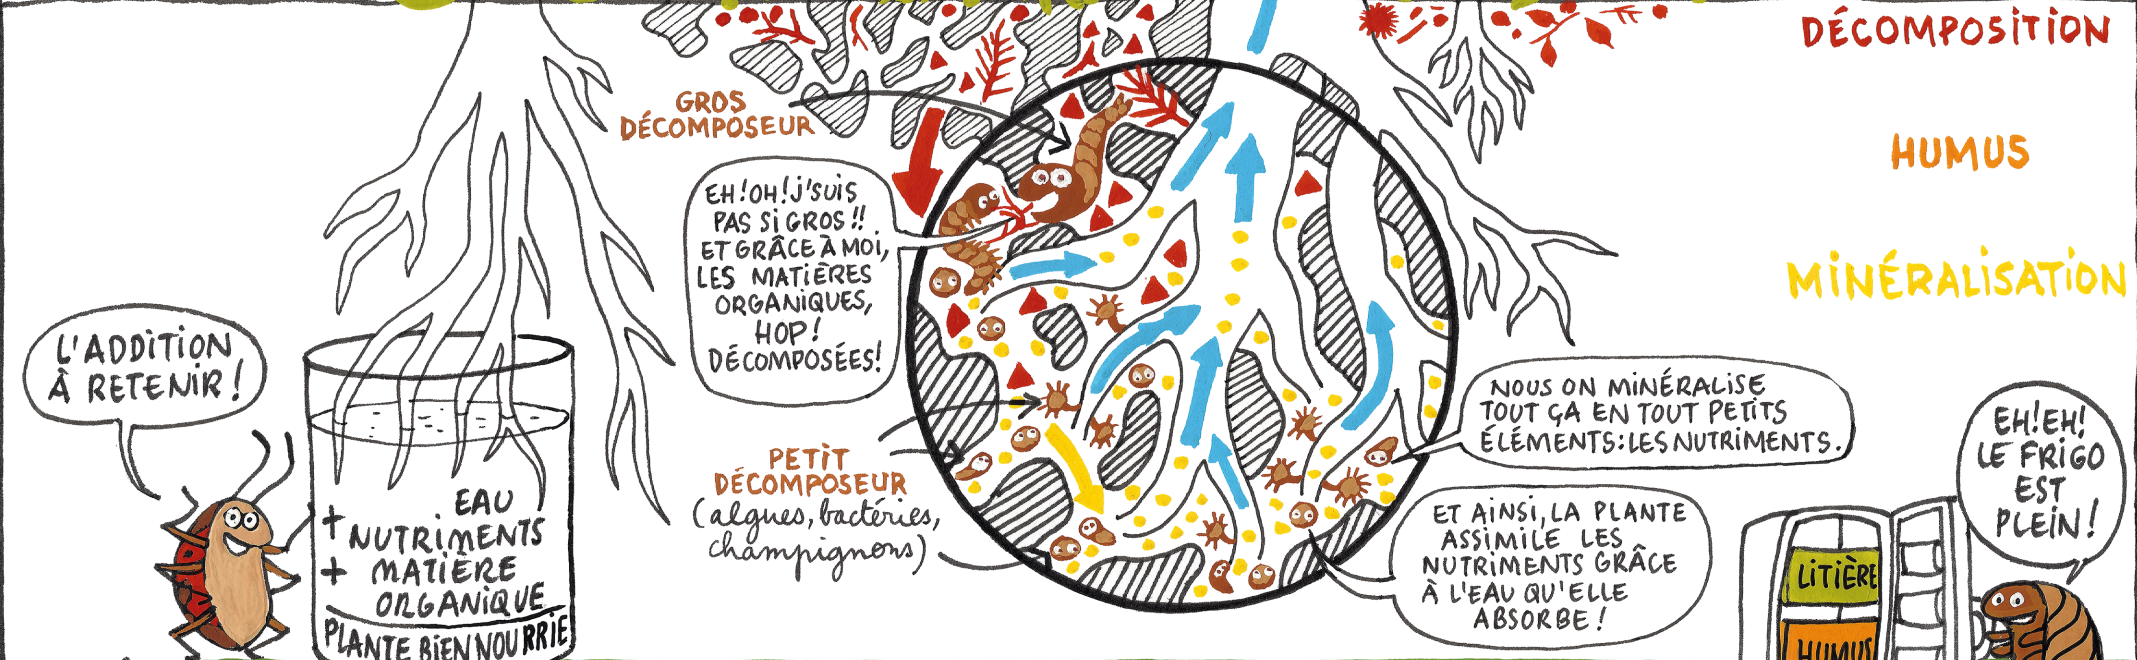 L'ADDITION
À RETENIR !
EAU
+ NUTRIMENTS
+ MATIÈRE
ORGANIQUE
PLANTE BIEN NOURRIE
GROS
DÉCOMPOSEUR
EH ! OH ! J'SUIS
PAS SI GROS !!
ET GRÂCE À MOI,
LES MATIÈRES
ORGANIQUES,
HOP !
DÉCOMPOSÉES !
PETIT
DÉCOMPOSEUR
(algues, bactéries,
champignons)
NOUS ON MINÉRALISE
TOUT ÇA EN TOUT PETITS
ÉLÉMENTS : LES NUTRIMENTS.
ET AINSI, LA PLANTE
ASSIMILE LES
NUTRIMENTS GRÂCE
À L'EAU QU'ELLE
ABSORBE !
DÉCOMPOSITION
HUMUS
MINÉRALISATION
EH ! EH !
LE FRIGO
EST
PLEIN !
LITIÈRE
HUMUS